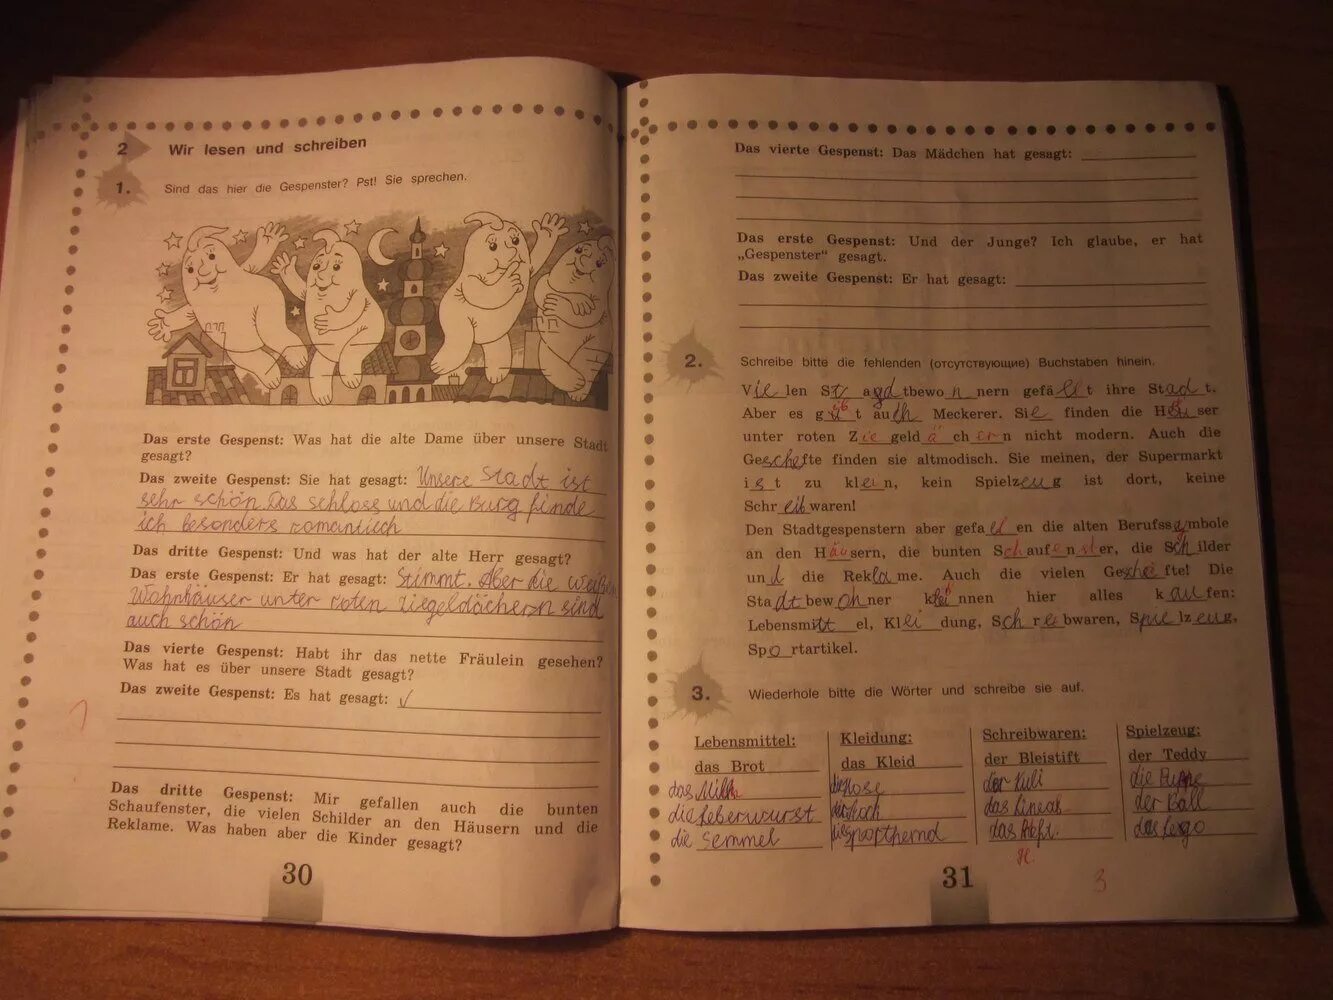 2 Wir lesen und schreiben
1. Sind das hier die Gespenster? Pst! Sie sprechen.
Das erste Gespenst: Was hat die alte Dame über unsere Stadt
gesagt?
Das zweite Gespenst: Sie hat gesagt: Unsere Stadt ist
sehr schön. Das schloss und die Burg finde
ich besonders romantisch
Das dritte Gespenst: Und was hat der alte Herr gesagt?
Das erste Gespenst: Er hat gesagt: Stimmt. Aber die weißen
Wohnhäuser unter roten Ziegeldächern sind
auch schön
Das vierte Gespenst: Habt ihr das nette Fräulein gesehen?
Was hat es über unsere Stadt gesagt?
Das zweite Gespenst: Es hat gesagt: ✓
Das dritte Gespenst: Mir gefallen auch die bunten
Schaufenster, die vielen Schilder an den Häusern und die
Reklame. Was haben aber die Kinder gesagt?
30
Das vierte Gespenst: Das Mädchen hat gesagt:
Das erste Gespenst: Und der Junge? Ich glaube, er hat
„Gespenster" gesagt.
Das zweite Gespenst: Er hat gesagt:
2. Schreibe bitte die fehlenden (отсутствующие) Buchstaben hinein.
Vielen nnern gefällt ihre Stadt.
Aber es gibt auch Meckerer. Sie finden die Häuser
unter roten Ziegeldächern nicht modern. Auch die
Geschefte finden sie altmodisch. Sie meinen, der Supermarkt
ist zu klein, kein Spielzeug ist dort, keine
Schreibwaren!
Den Stadtgespenstern aber gefallen die alten Berufssymbole
an den Häusern, die bunten Schaufenster, die Schilder
und die Reklame. Auch die vielen Die
Stadtbewohner nnen hier alles kaufen:
Lebensmittel, Kleidung, Schreibwaren, Spielzeug,
Sportartikel.
3. Wiederhole bitte die Wörter und schreibe sie auf.
Lebensmittel: Kleidung: Schreibwaren: Spielzeug:
das Brot das Kleid der Bleistift der Teddy
das Milk die Hose der Kuli die Puppe
die Leberwurst der Rock das Lineal der Ball
die Semmel das Heft. das Lego
31
3